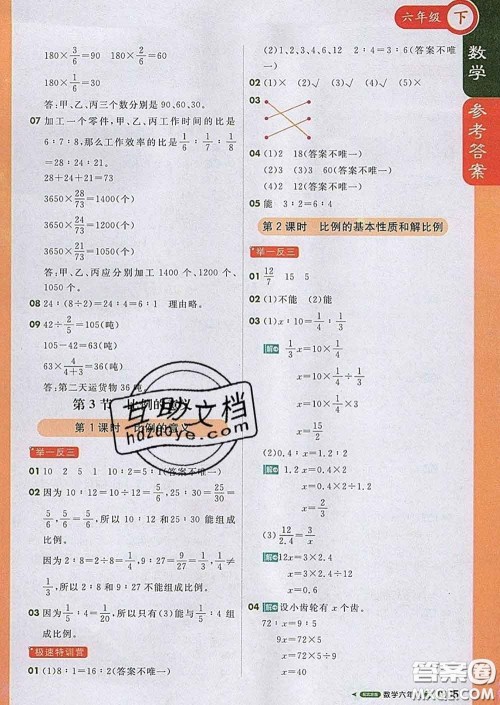 六年级 下
数学
参考答案
180×3/6=90 180×2/6=60
180×1/6=30
答:甲、乙、丙三个数分别是90,60,30。
07 加工一个零件,甲、乙、丙工作时间的比是
6∶7∶8,那么工作效率的比是1/6∶1/7∶1/8
=28∶24∶21。
28+24+21=73
3650×28/73=1400(个)
3650×24/73=1200(个)
3650×21/73=1050(个)
答:甲、乙、丙应分别加工1400个、1200个、
1050个。
08 24∶(8÷2)=24∶4=6∶1 理由略。
09 42÷2/5=105(吨)
105-42=63(吨)
63×4/(4+3)=36(吨)
答:第二天运货物36吨。
第3节 比例的意义
第1课时 比例的意义
举一反三
01 10 2 5 1 10∶2=5∶1(答案不唯一)
02 因为10∶12=10÷12=5/6,25∶30=25÷30=
5/6,5/6=5/6,所以10∶12和25∶30能组成
比例。
因为2∶8=2÷8=1/4,9∶27=9÷27=1/3,1/4≠
1/3,所以2∶8和9∶27不能组成比例。
03 因为1/5∶4=1/20,所以只有(3)能与1/5∶4组
成比例。
极速特训营
01 (1)8∶1=16∶2(答案不唯一)
(2)1,2,3,4,6,12 2∶4=3∶6(答案不唯
一)
02 (1)× (2)√ (3)√ (4)× (5)×
03
04 (1)2 18(答案不唯一)
(2)4 9(答案不唯一)
05 能 3∶2=6∶4
第2课时 比例的基本性质和解比例
举一反三
01 12/7 15 5
02 (1)不能 (2)能
03 (1)x∶10=1/4∶1/3
解 1/3x=10×1/4
x=10×1/4÷1/3
x=10×1/4×3
x=15/2
(2)0.4∶x=1.2∶2
解 1.2x=0.4×2
x=0.4×2÷1.2
x=2/3
(3)12/2.4=3/x
解 12x=3×2.4
x=3×2.4÷12
x=0.6
04 解 设小齿轮有x个齿。
72∶x=9∶5
9x=72×5
x=72×5÷9
x=40
互助文档
hdzuoye.com
数学六年
答案圈